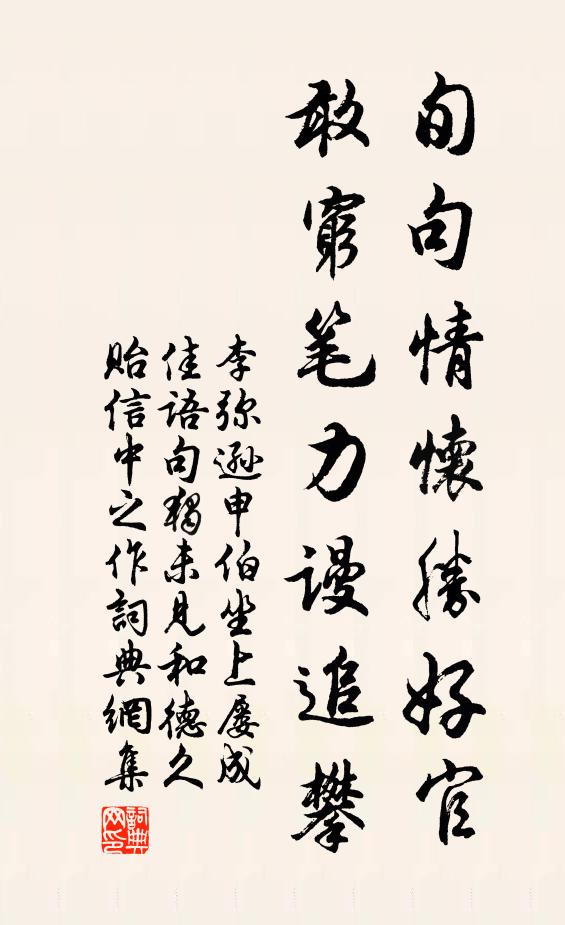 旬句情懷勝好官
敢窮笔力謾追攀
李弥遜申伯坐上屡成
佳語句獨未見和德久
貽信中之作詞典網集
詞典網印